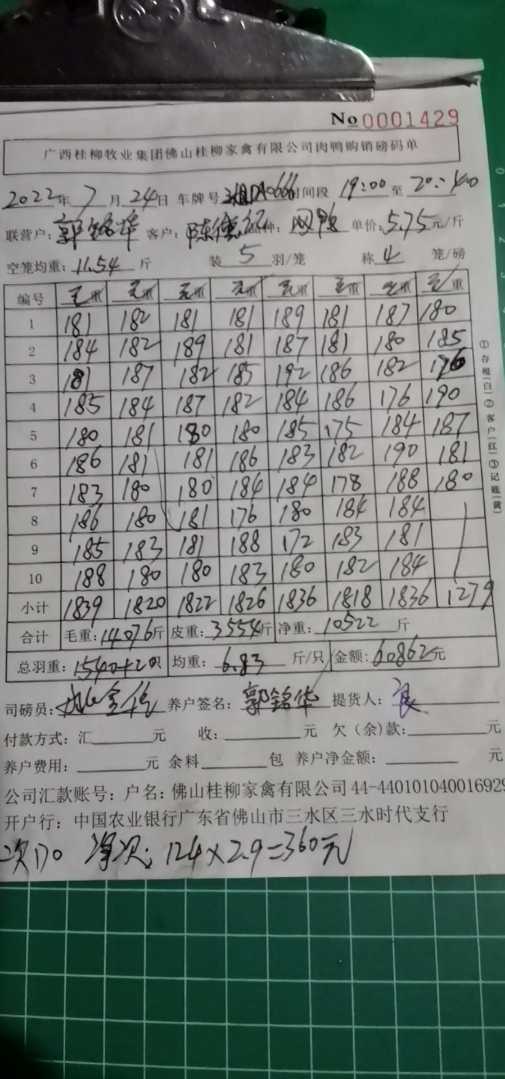 No 0001429
广西桂柳牧业集团佛山桂柳家禽有限公司肉鸭购销磅码单
2022年 7 月 24日 车牌号 时间段 19:00 至 20:40
联营户: 郭铭华 客户: 陈德 种: 单价: 5.75元/斤
空笼均重: 11.54 斤 装 5 羽/笼 称 4 笼/磅
编号 毛重 毛重 毛重 毛重 毛重 毛重 毛重 毛重
1 181 182 181 181 189 181 187 180
2 184 182 189 181 187 181 180 185
3 181 187 182 185 192 186 182 176
4 185 184 187 182 184 186 176 190
5 180 181 180 180 185 175 184 187
6 186 181 181 186 183 182 190 181
7 183 180 180 184 184 178 188 180
8 186 180 181 176 180 184 184
9 185 183 181 188 172 183 181
10 188 180 180 183 180 182 184
小计 1839 1820 1822 1826 1836 1818 1836 1279
合计 毛重: 14076斤 皮重: 3554斤 净重: 10522 斤
总羽重: 1540+2只 均重: 6.83 斤/只 金额: 60862元
司磅员: 养户签名: 郭铭华 提货人: 良
付款方式: 汇 元 收: 元 欠(余)款: 元
养户费用: 元 余料 包 养户净金额: 元
公司汇款账号: 户名: 佛山桂柳家禽有限公司 44-440101040016929
开户行: 中国农业银行广东省佛山市三水区三水时代支行
次170 净次: 124×2.9=360元
①存根(白)②客户(红)③记账(黄)